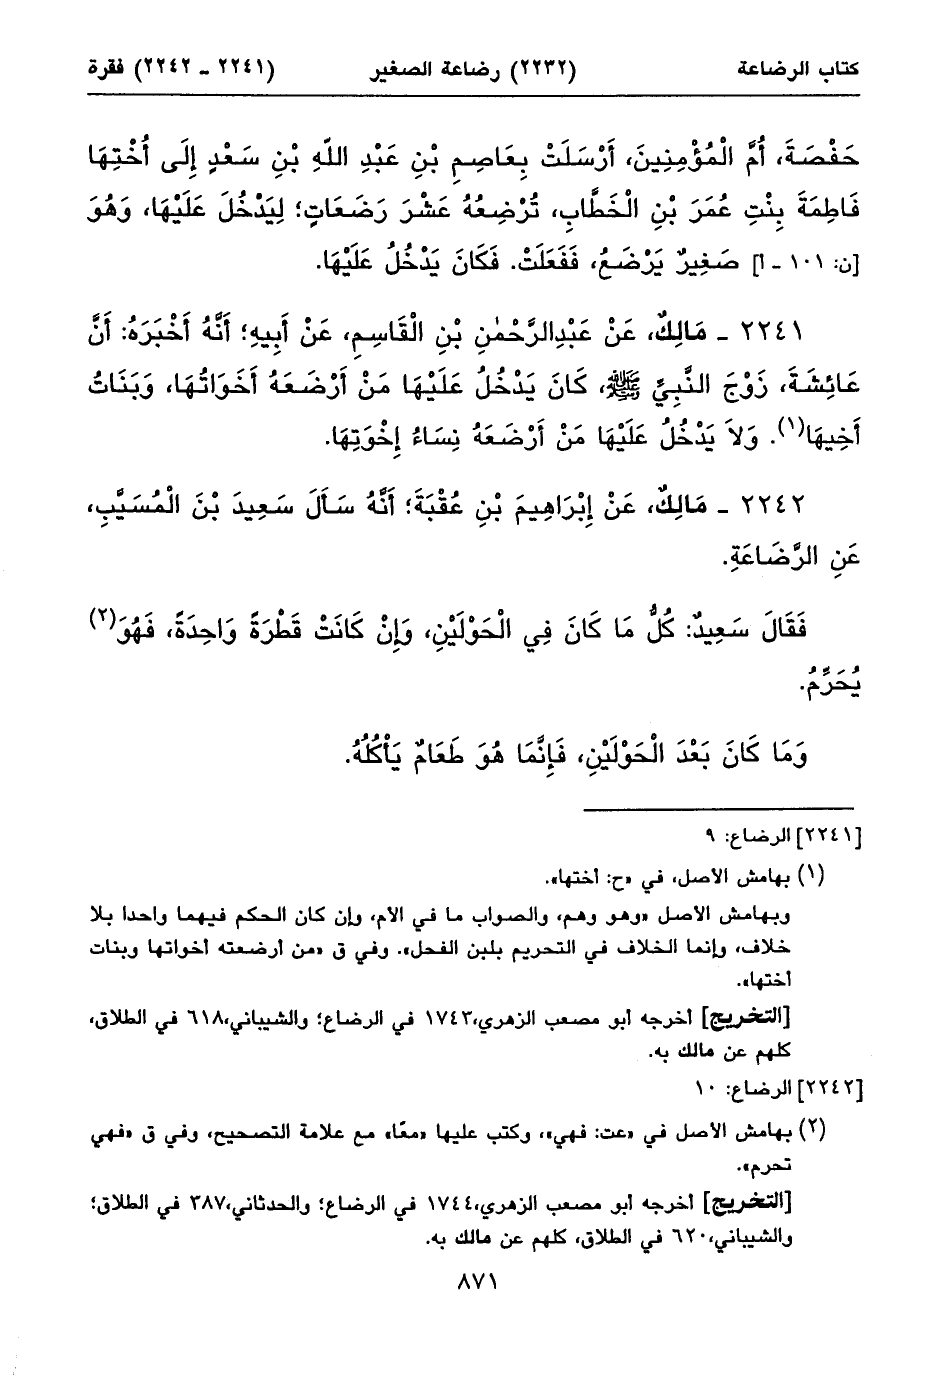 كتاب الرضاعة (٢٢٣٢) رضاعة الصغير (٢٢٤١ ـ ٢٢٤٢) فقرة
حَفْصَةَ، أُمَّ الْمُؤْمِنِينَ، أَرْسَلَتْ بِعَاصِمِ بْنِ عَبْدِ اللّهِ بْنِ سَعْدٍ إِلَى أُخْتِهَا
فَاطِمَةَ بِنْتِ عُمَرَ بْنِ الْخَطَّابِ، تُرْضِعُهُ عَشْرَ رَضَعَاتٍ؛ لِيَدْخُلَ عَلَيْهَا، وَهُوَ
[ن: ١٠١ ـ أ] صَغِيرٌ يَرْضَعُ، فَفَعَلَتْ. فَكَانَ يَدْخُلُ عَلَيْهَا.
٢٢٤١ ـ مَالِكٌ، عَنْ عَبْدِالرَّحْمٰنِ بْنِ الْقَاسِمِ، عَنْ أَبِيهِ؛ أَنَّهُ أَخْبَرَهُ: أَنَّ
عَائِشَةَ، زَوْجَ النَّبِيِّ ﷺ، كَانَ يَدْخُلُ عَلَيْهَا مَنْ أَرْضَعَهُ أَخَوَاتُهَا، وَبَنَاتُ
أَخِيهَا(١). وَلاَ يَدْخُلُ عَلَيْهَا مَنْ أَرْضَعَهُ نِسَاءُ إِخْوَتِهَا.
٢٢٤٢ ـ مَالِكٌ، عَنْ إِبْرَاهِيمَ بْنِ عُقْبَةَ؛ أَنَّهُ سَأَلَ سَعِيدَ بْنَ الْمُسَيَّبِ،
عَنِ الرَّضَاعَةِ.
فَقَالَ سَعِيدٌ: كُلُّ مَا كَانَ فِي الْحَوْلَيْنِ، وَإِنْ كَانَتْ قَطْرَةً وَاحِدَةً، فَهُوَ(٢)
يُحَرِّمُ.
وَمَا كَانَ بَعْدَ الْحَوْلَيْنِ، فَإِنَّمَا هُوَ طَعَامٌ يَأْكُلُهُ.
[٢٢٤١] الرضاع: ٩
(١) بهامش الأصل، في «ح: أختها».
وبهامش الأصل «وهو وهم، والصواب ما في الأم، وإن كان الحكم فيهما واحدا بلا
خلاف، وإنما الخلاف في التحريم بلبن الفحل». وفي ق «من أرضعته أخواتها وبنات
أختها».
[التخريج] أخرجه أبو مصعب الزهري، ١٧٤٣ في الرضاع؛ والشيباني، ٦١٨ في الطلاق،
كلهم عن مالك به.
[٢٢٤٢] الرضاع: ١٠
(٢) بهامش الأصل في «عت: فهي»، وكتب عليها «معًا» مع علامة التصحيح، وفي ق «فهي
تحرم».
[التخريج] أخرجه أبو مصعب الزهري، ١٧٤٤ في الرضاع؛ والحدثاني، ٣٨٧ في الطلاق؛
والشيباني، ٦٢٠ في الطلاق، كلهم عن مالك به.
٨٧١